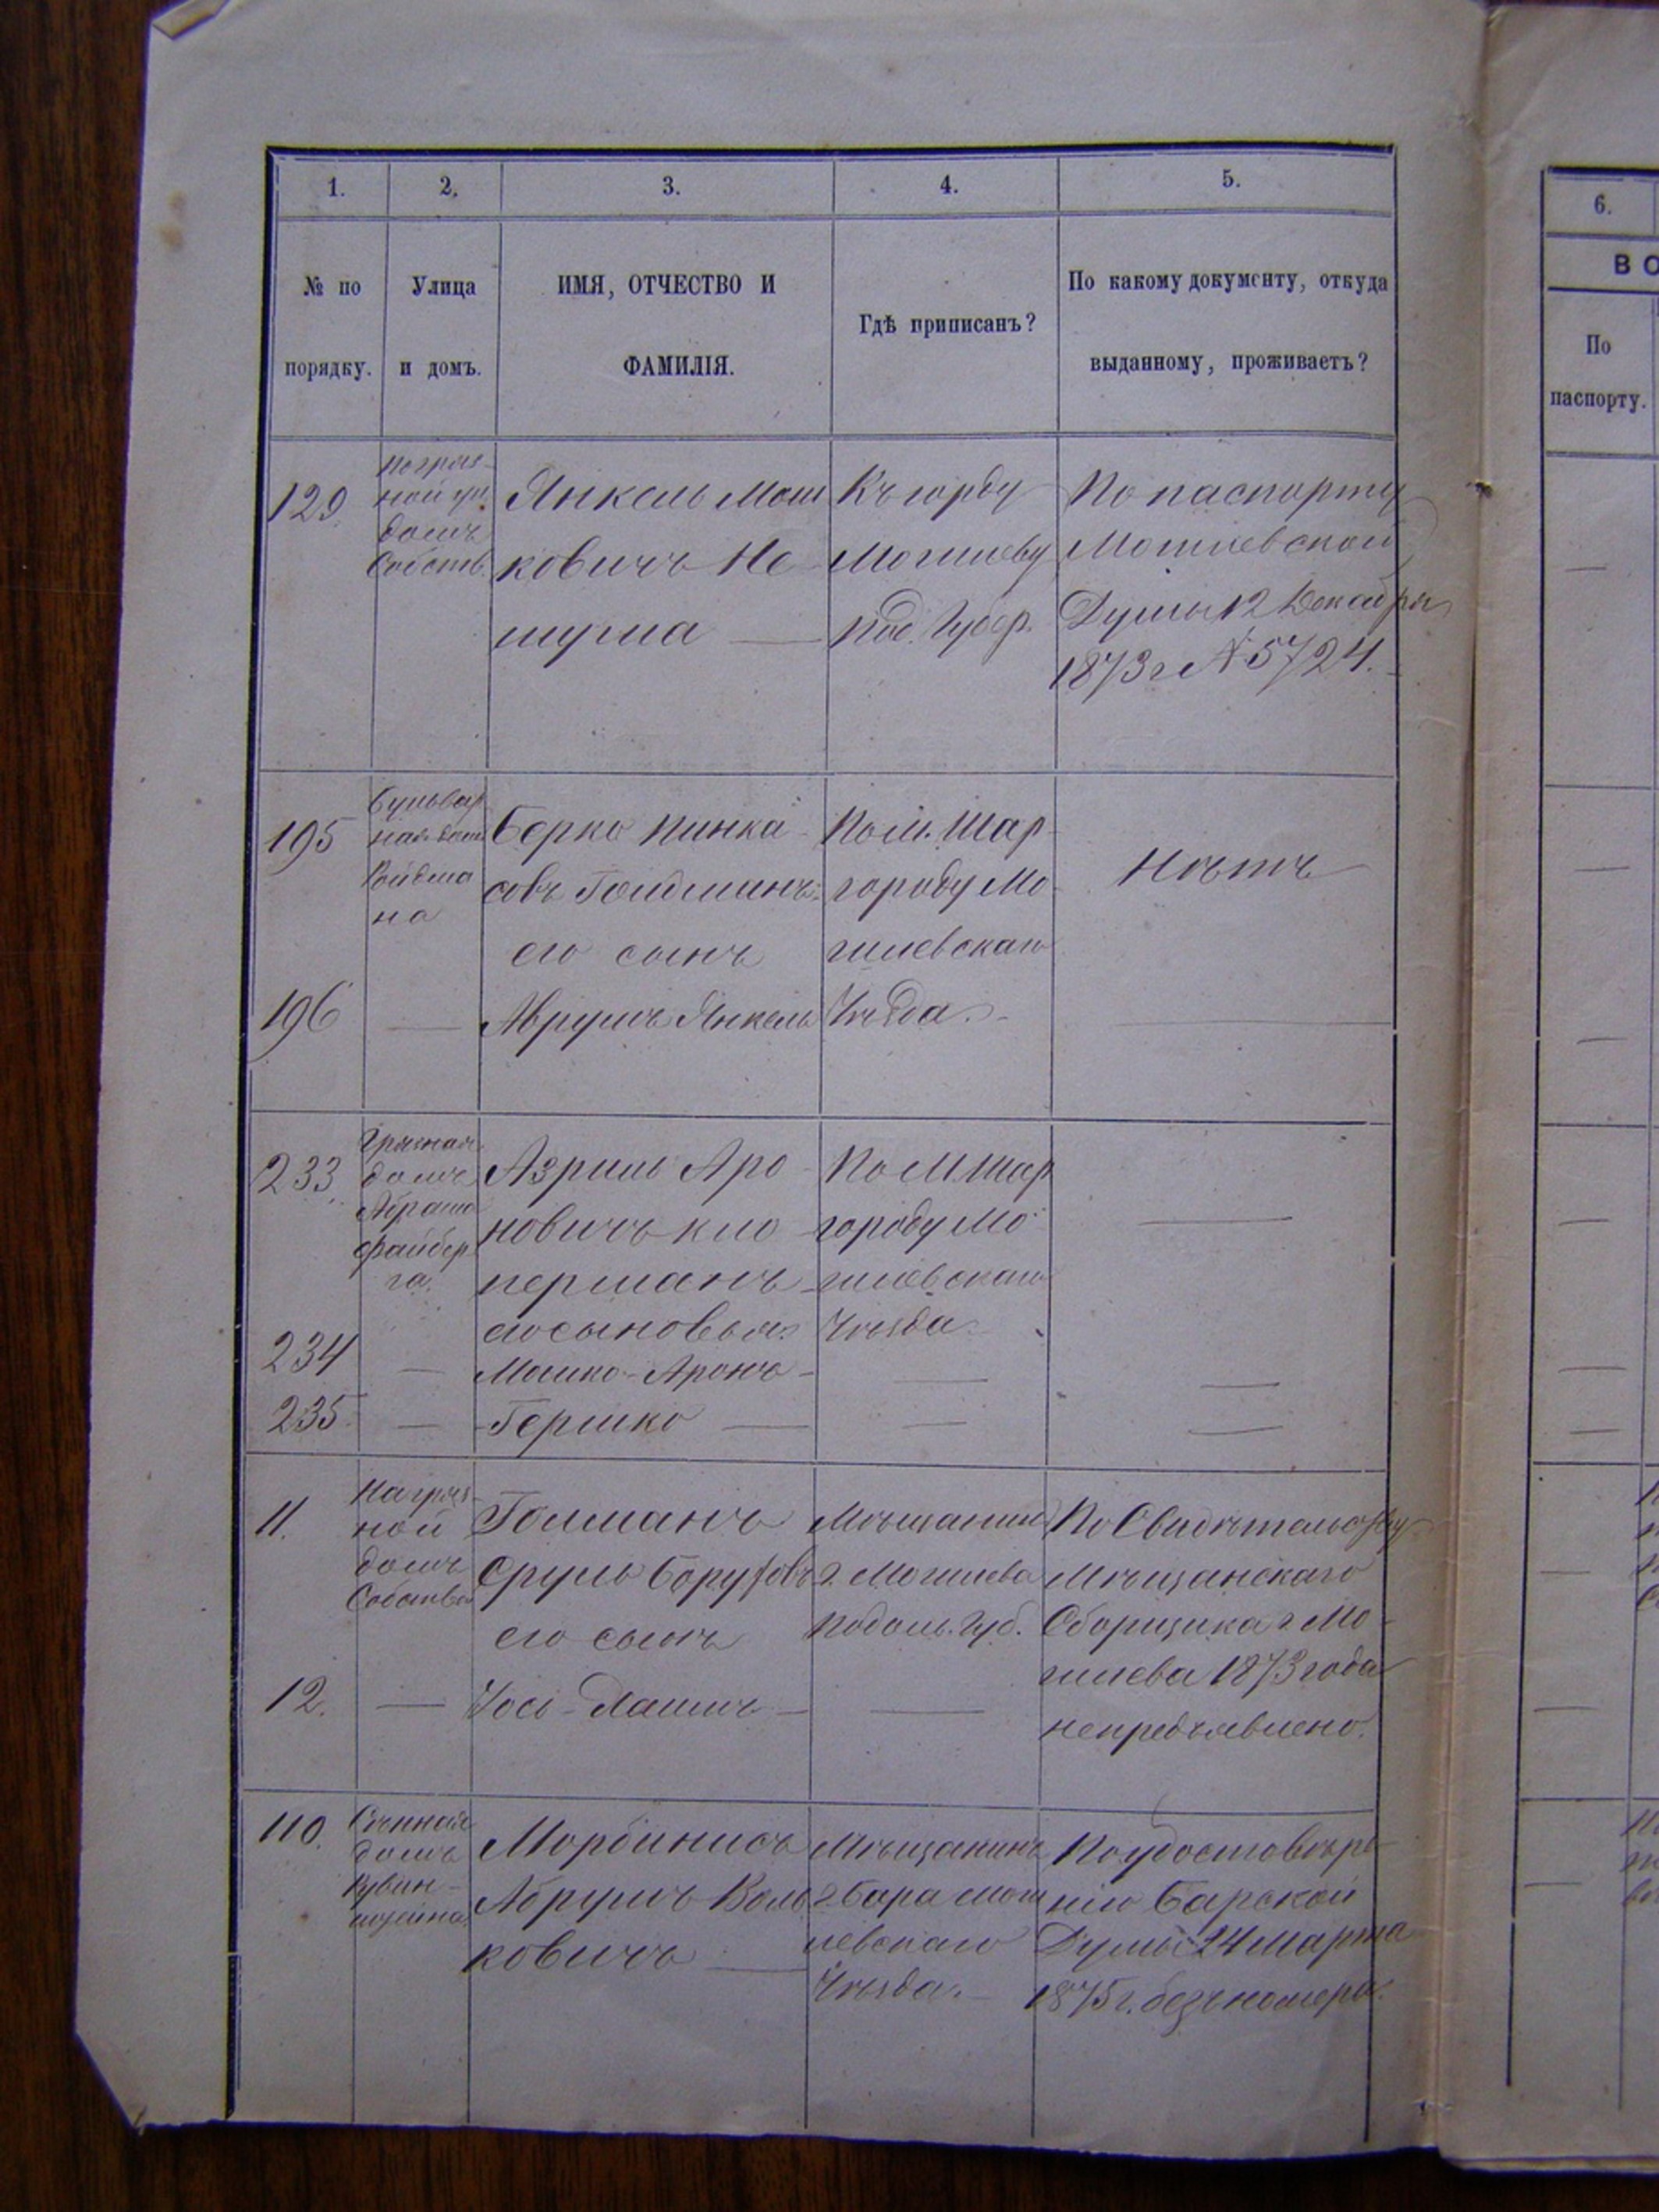 1. 2. 3. 4. 5.
№ по порядку.
Улица и домъ.
ИМЯ, ОТЧЕСТВО И
ФАМИЛІЯ.
Гдѣ приписанъ?
По какому документу, откуда
выданному, проживаетъ?
129.
погряз-
ной ул.
домъ
Собств.
Янкель Мош
ковичъ Не
шума
Къ горду
Могилеву
под. Губер.
По паспорту
Могилевской
Думы 12 Декабря
1873 г № 5724.
195
Бульвар
ная домъ
Войдма
на
Берко Пинка-
совъ Гойдманъ
его сынъ
По м. Шар-
городу Мо-
гилевскаго
Уѣзда.
Нѣтъ
196
Аврумъ Янкель
233.
Грязная
домъ
Абрама
Файбер
га.
Азриль Аро-
новичъ Кло-
перманъ
его сыновья
По М. Шар
городу Мо-
гилевскаго
Уѣзда.
234
Мошко-Аронъ-
235.
Гершко
11.
На гряз-
ной
домъ
Собствен
Голманъ
Сруль Боруховъ
его сынъ
Мѣщанинъ
г. Могилева
Подоль. Губ.
По Свидѣтельству
Мѣщанскаго
Сборщика г. Мо-
гилева 1873 года
непредъявлено.
12.
Іось-Хаимъ
110.
Сѣнная
домъ
Рубин-
штейна
Мордининсъ
Абрумъ Воль
ковичъ
Мѣщанинъ
г. Бара Моги
левскаго
Уѣзда.
По удостовѣре-
нію Барской
Думы 24 Марта
1875 г. безъ номера.
6.
ВО
По
паспорту.